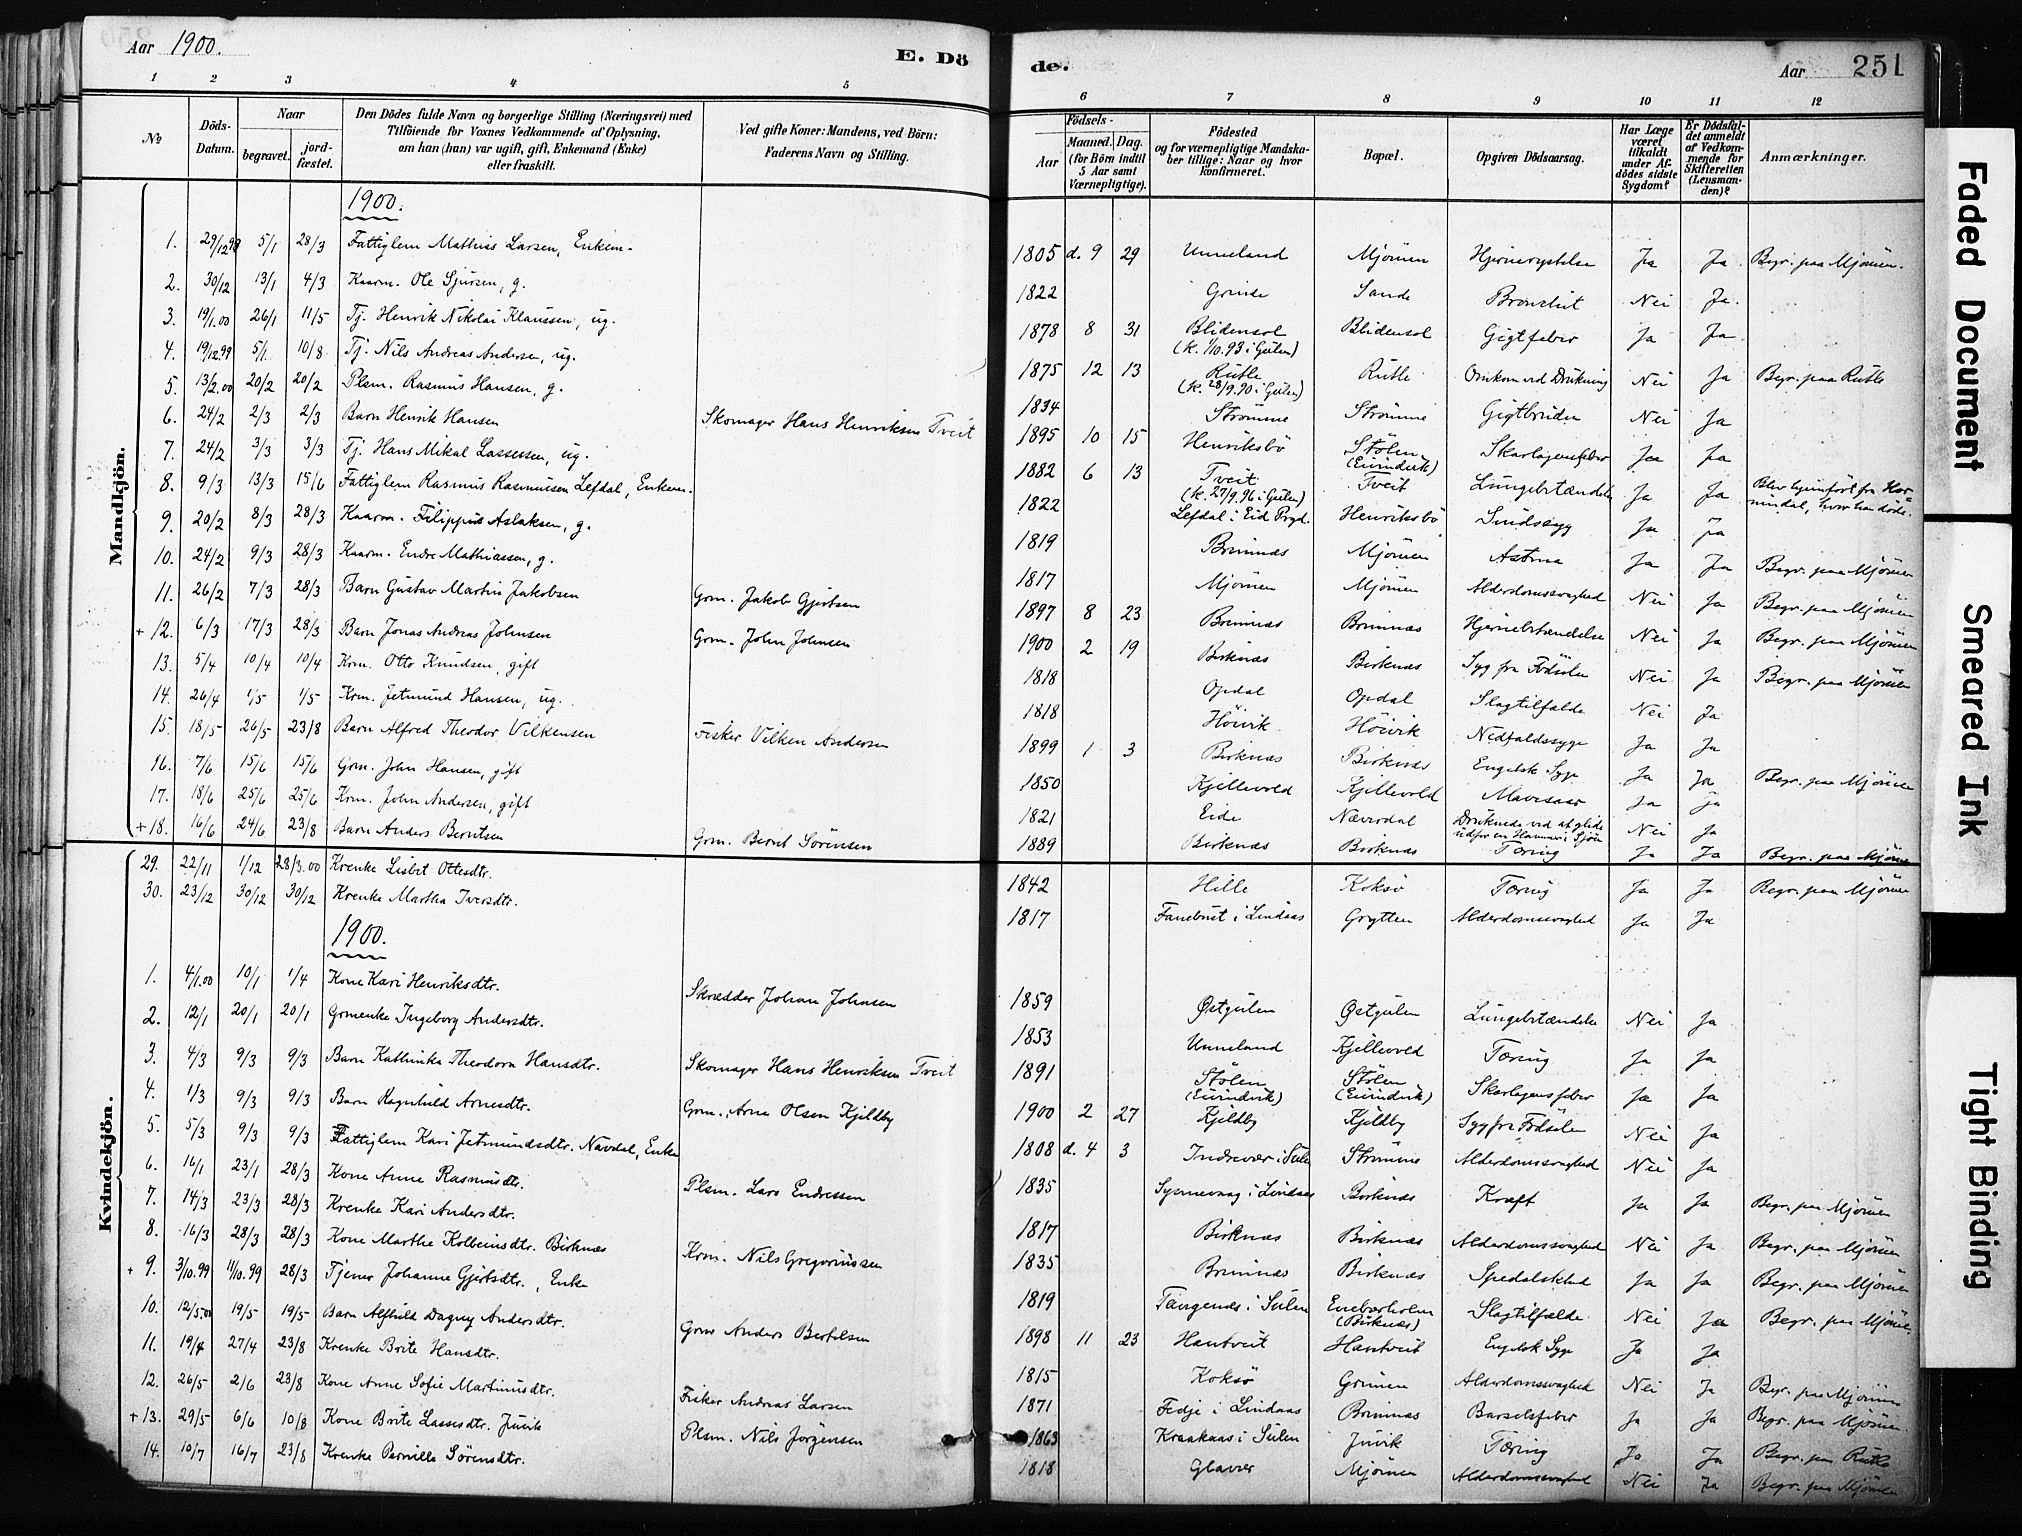 Aar 1900.
E. Dö
de.
Aar 251
1 2 3 4 5 6 7 8 9 10 11 12
№
Döds-Datum.
Naar
begravet.
jord-fæstet.
Den Dödes fulde Navn og borgerlige Stilling (Næringsvei) med
Tilföiende for Voxnes Vedkommende af Oplysning,
om han (hun) var ugift, gift, Enkemand (Enke)
eller fraskilt.
Ved gifte Koner: Mandens, ved Börn:
Faderens Navn og Stilling.
Födsels-
Aar
Maaned. Dag.
(for Börn indtil
5 Aar samt
Værnepligtige).
Födested
og for værnepligtige Mandska-
ber tillige: Naar og hvor
konfirmeret.
Bopæl.
Opgiven Dödsaarsag.
Har Læge
været
tilkaldt
under Af-
dödes sidste
Sygdom?
Er Dödsfal-
det anmeldt
af Vedkom-
mende for
Skifteretten
(Lensman-
den)?
Anmærkninger.
Mandkjön.
1900.
1. 29/12 99 5/1 28/3 Fattiglem Mathias Larsen, Enkem. 1805 d. 9 29 Unneland Mjömen Hjernerystelse Ja Ja Begr. paa Mjömen.
2. 30/12 13/1 4/3 Kaarm. Ole Sjursen, g. 1822 Grinde Sande Bronchit Nei Ja.
3. 19/1.00 26/1 11/5 Tj. Henrik Nikolai Klaussen, ug. 1878 8 31 Blidensol (k. 1/10.93 i Gulen) Blidensol Gigtfeber Ja Ja
4. 19/12.99 5/1 10/8 Tj. Nils Andreas Andersen, ug. 1875 12 13 Rutle (k. 28/9.90 i Gulen) Rutle Omkom ved Drukning Nei Ja Begr. paa Rutle
5. 13/2.00 20/2 20/2 Plsm. Rasmus Hansen, g. 1834 Strömme Strömme Gigtbruden Nei Ja
6. 24/2 2/3 2/3 Barn Henrik Hansen Skomager Hans Henriksen Tveit 1895 10 15 Henriksbö Stölen (Eivindvik) Skarlagensfeber Ja Ja
7. 24/2 3/3 3/3 Tj. Hans Mikal Lassessen, ug. 1882 6 13 Tveit (k. 27/9.96 i Gulen) Tveit Lungebetændelse Ja Ja
8. 9/3 13/3 15/6 Fattiglem Rasmus Rasmussen Lefdal, Enkem. 1822 Lefdal i Eid Prgd. Henriksbö Sindssyg Ja Ja Blev hjemfört fra Hornindal, hvor han döde.
9. 20/2 8/3 28/3 Kaarm. Filippus Aslaksen, g. 1819 Brimnæs Mjömen Astma Ja Ja Begr. paa Mjömen
10. 24/2 9/3 28/3 Kaarm. Endre Mathiassen, g. 1817 Mjömen Mjömen Alderdomssvaghed Nei Ja Begr. paa Mjömen
11. 26/2 7/3 28/3 Barn Gustav Martin Jakobsen Grm. Jakob Gjertsen 1897 8 23 Brimnæs Brimnæs Hjernebetændelse Nei Ja Begr. paa Mjömen
+ 12. 6/3 17/3 28/3 Barn Jonas Andreas Johnsen Grm. John Johnsen 1900 2 19 Birknæs Birknæs Syg fra Födselen Nei Ja Begr. paa Mjömen
13. 5/4 10/4 10/4 Krm. Otto Knudsen, gift 1818 Opdal Opdal Slagtilfælde Nei Ja
14. 26/4 1/5 1/5 Krm. Jetmund Hansen, ug. 1818 Höivik Höivik Nedfaldssyge Ja Ja
15. 18/5 26/5 23/8 Barn Alfred Theodor Vilkensen Fisker Vilken Andersen 1899 1 3 Birknæs Birknæs Engelsk Syge Ja Ja Begr. paa Mjömen
16. 7/6 15/6 15/6 Grm. John Hansen, gift 1850 Kjellevold Kjellevold Mavesaar Ja Ja
17. 18/6 25/6 25/6 Krm. John Andersen, gift 1821 Eide Nævrdal Druknede ved at glide udfor en Hammer i Sjöen Nei Ja
+ 18. 16/6 24/6 23/8 Barn Anders Berntsen Grm. Bernt Sörensen 1889 Birknæs Birknæs Tæring Ja Ja Begr. paa Mjömen
Kvindekjön.
29. 22/11 1/12 28/3.00 Krenke Lisbet Ottesdtr. 1842 Hille Koksö Tæring Ja Ja Begr. paa Mjömen
30. 23/12 30/12 30/12 Krenke Martha Iversdtr. 1817 Fanebust i Lindaas Grytten Alderdomssvaghed Ja Ja
1900.
1. 4/1.00 10/1 1/4 Kone Kari Henriksdtr. Skrædder Johan Johnsen 1859 Østgulen Østgulen Lungebetændelse Nei Ja
2. 12/1 20/1 20/1 Grmenke Ingeborg Andersdtr. 1853 Unneland Kjellevold Tæring Ja Ja
3. 4/3 9/3 9/3 Barn Kathinka Theodora Hansdtr. Skomager Hans Henriksen Tveit 1891 Stölen (Eivindvik) Stölen (Eivindvik) Skarlagensfeber Ja Ja
4. 1/3 9/3 9/3 Barn Ragnhild Arnesdtr. Grm. Arne Olsen Kjeldby 1900 2 27 Kjeldby Kjeldby Syg fra Födselen Nei Ja
5. 5/3 9/3 9/3 Fattiglem Kari Jetmundsdtr. Nævdal, Enke 1808 d. 4 3 Indrevær i Sulen Strömme Alderdomssvaghed Nei Ja
6. 16/1 23/1 28/3 Kone Anne Rasmusdtr. Plsm. Lars Endressen 1835 Synnevaag i Lindaas Birknæs Kræft Ja Ja Begr. paa Mjömen
7. 14/3 23/3 28/3 Krenke Kari Andersdtr. 1817 Birknæs Birknæs Alderdomssvaghed Nei Ja Begr. paa Mjömen
8. 16/3 28/3 28/3 Kone Marthe Kolbeinsdtr. Birknæs Krm. Nils Gregoriussen 1835 Brimnæs Birknæs Spedalskhed Ja Ja Begr. paa Mjömen
+ 9. 3/10.99 11/10.99 28/3 Tjener Johanne Gjertsdtr., Enke 1819 Tangenæs i Sulen Enebærholm (Birknæs) Slagtilfælde Nei Ja Begr. paa Mjömen.
10. 12/5.00 19/5 19/5 Barn Alfhild Dagny Andersdtr. Grm Anders Bertelsen 1898 11 23 Hantveit Hantveit Engelsk Syge Ja Ja
11. 19/4 27/4 23/8 Krenke Brite Hansdtr. 1815 Koksö Grimen Alderdomssvaghed Nei Ja Begr. paa Mjömen
12. 26/5 2/6 23/8 Kone Anne Sofie Martinusdtr. Fisker Andreas Larsen 1871 Fedje i Lindaas Brimnæs Barselsfeber Ja Ja Begr. paa Mjömen
+ 13. 29/5 6/6 10/8 Kone Brite Lassesdtr. Juvik Plsm. Nils Jörgensen 1863 Kraakaas i Sulen Juvik Tæring Ja Ja Begr. paa Rutle
14. 10/7 16/7 23/8 Krenke Pernille Sörensdtr. 1818 Glavær Mjömen Alderdomssvaghed Nei Ja Begr. paa Mjömen
Faded Document
Smeared Ink
Tight Binding